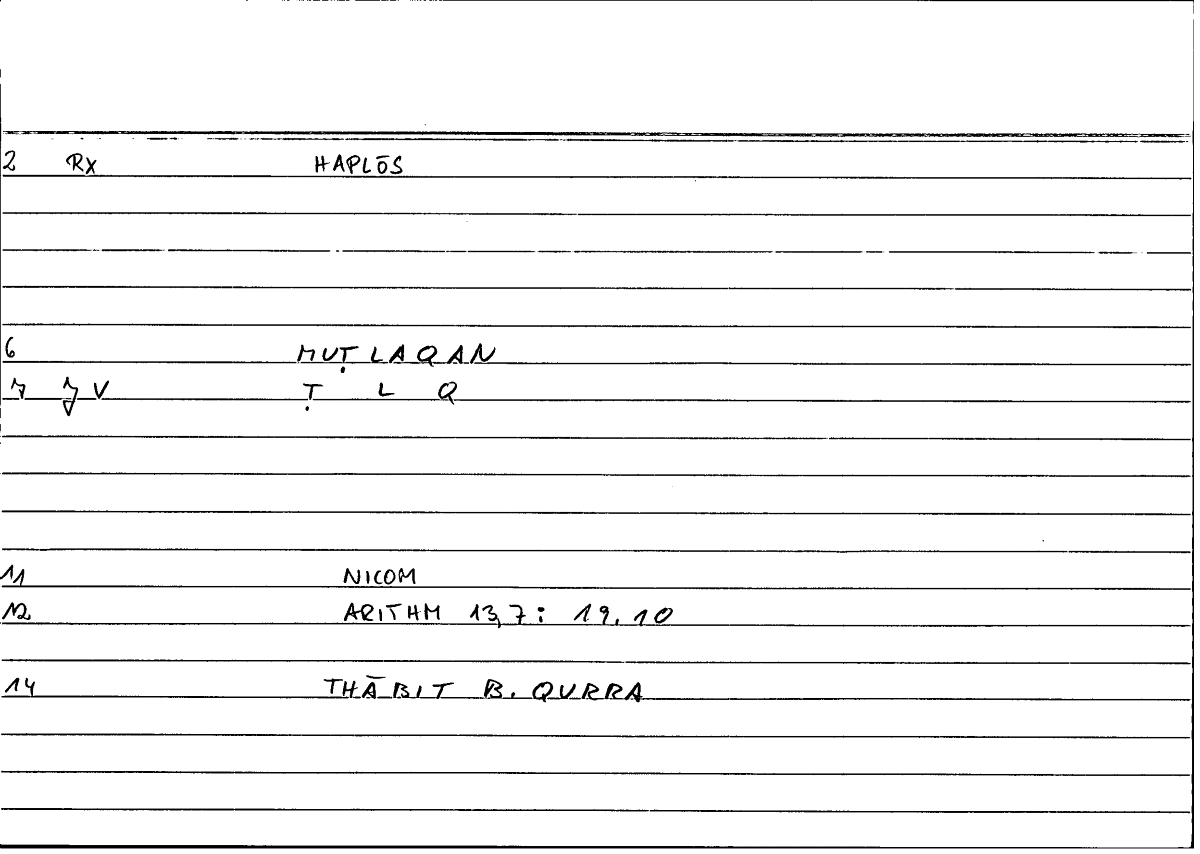 2 RX HAPLŌS
6 MUṬLAQAN
7 JV Ṭ L Q
11 NICOM
12 ARITHM 13,7: 19.10
14 THĀBIT B. QURRA